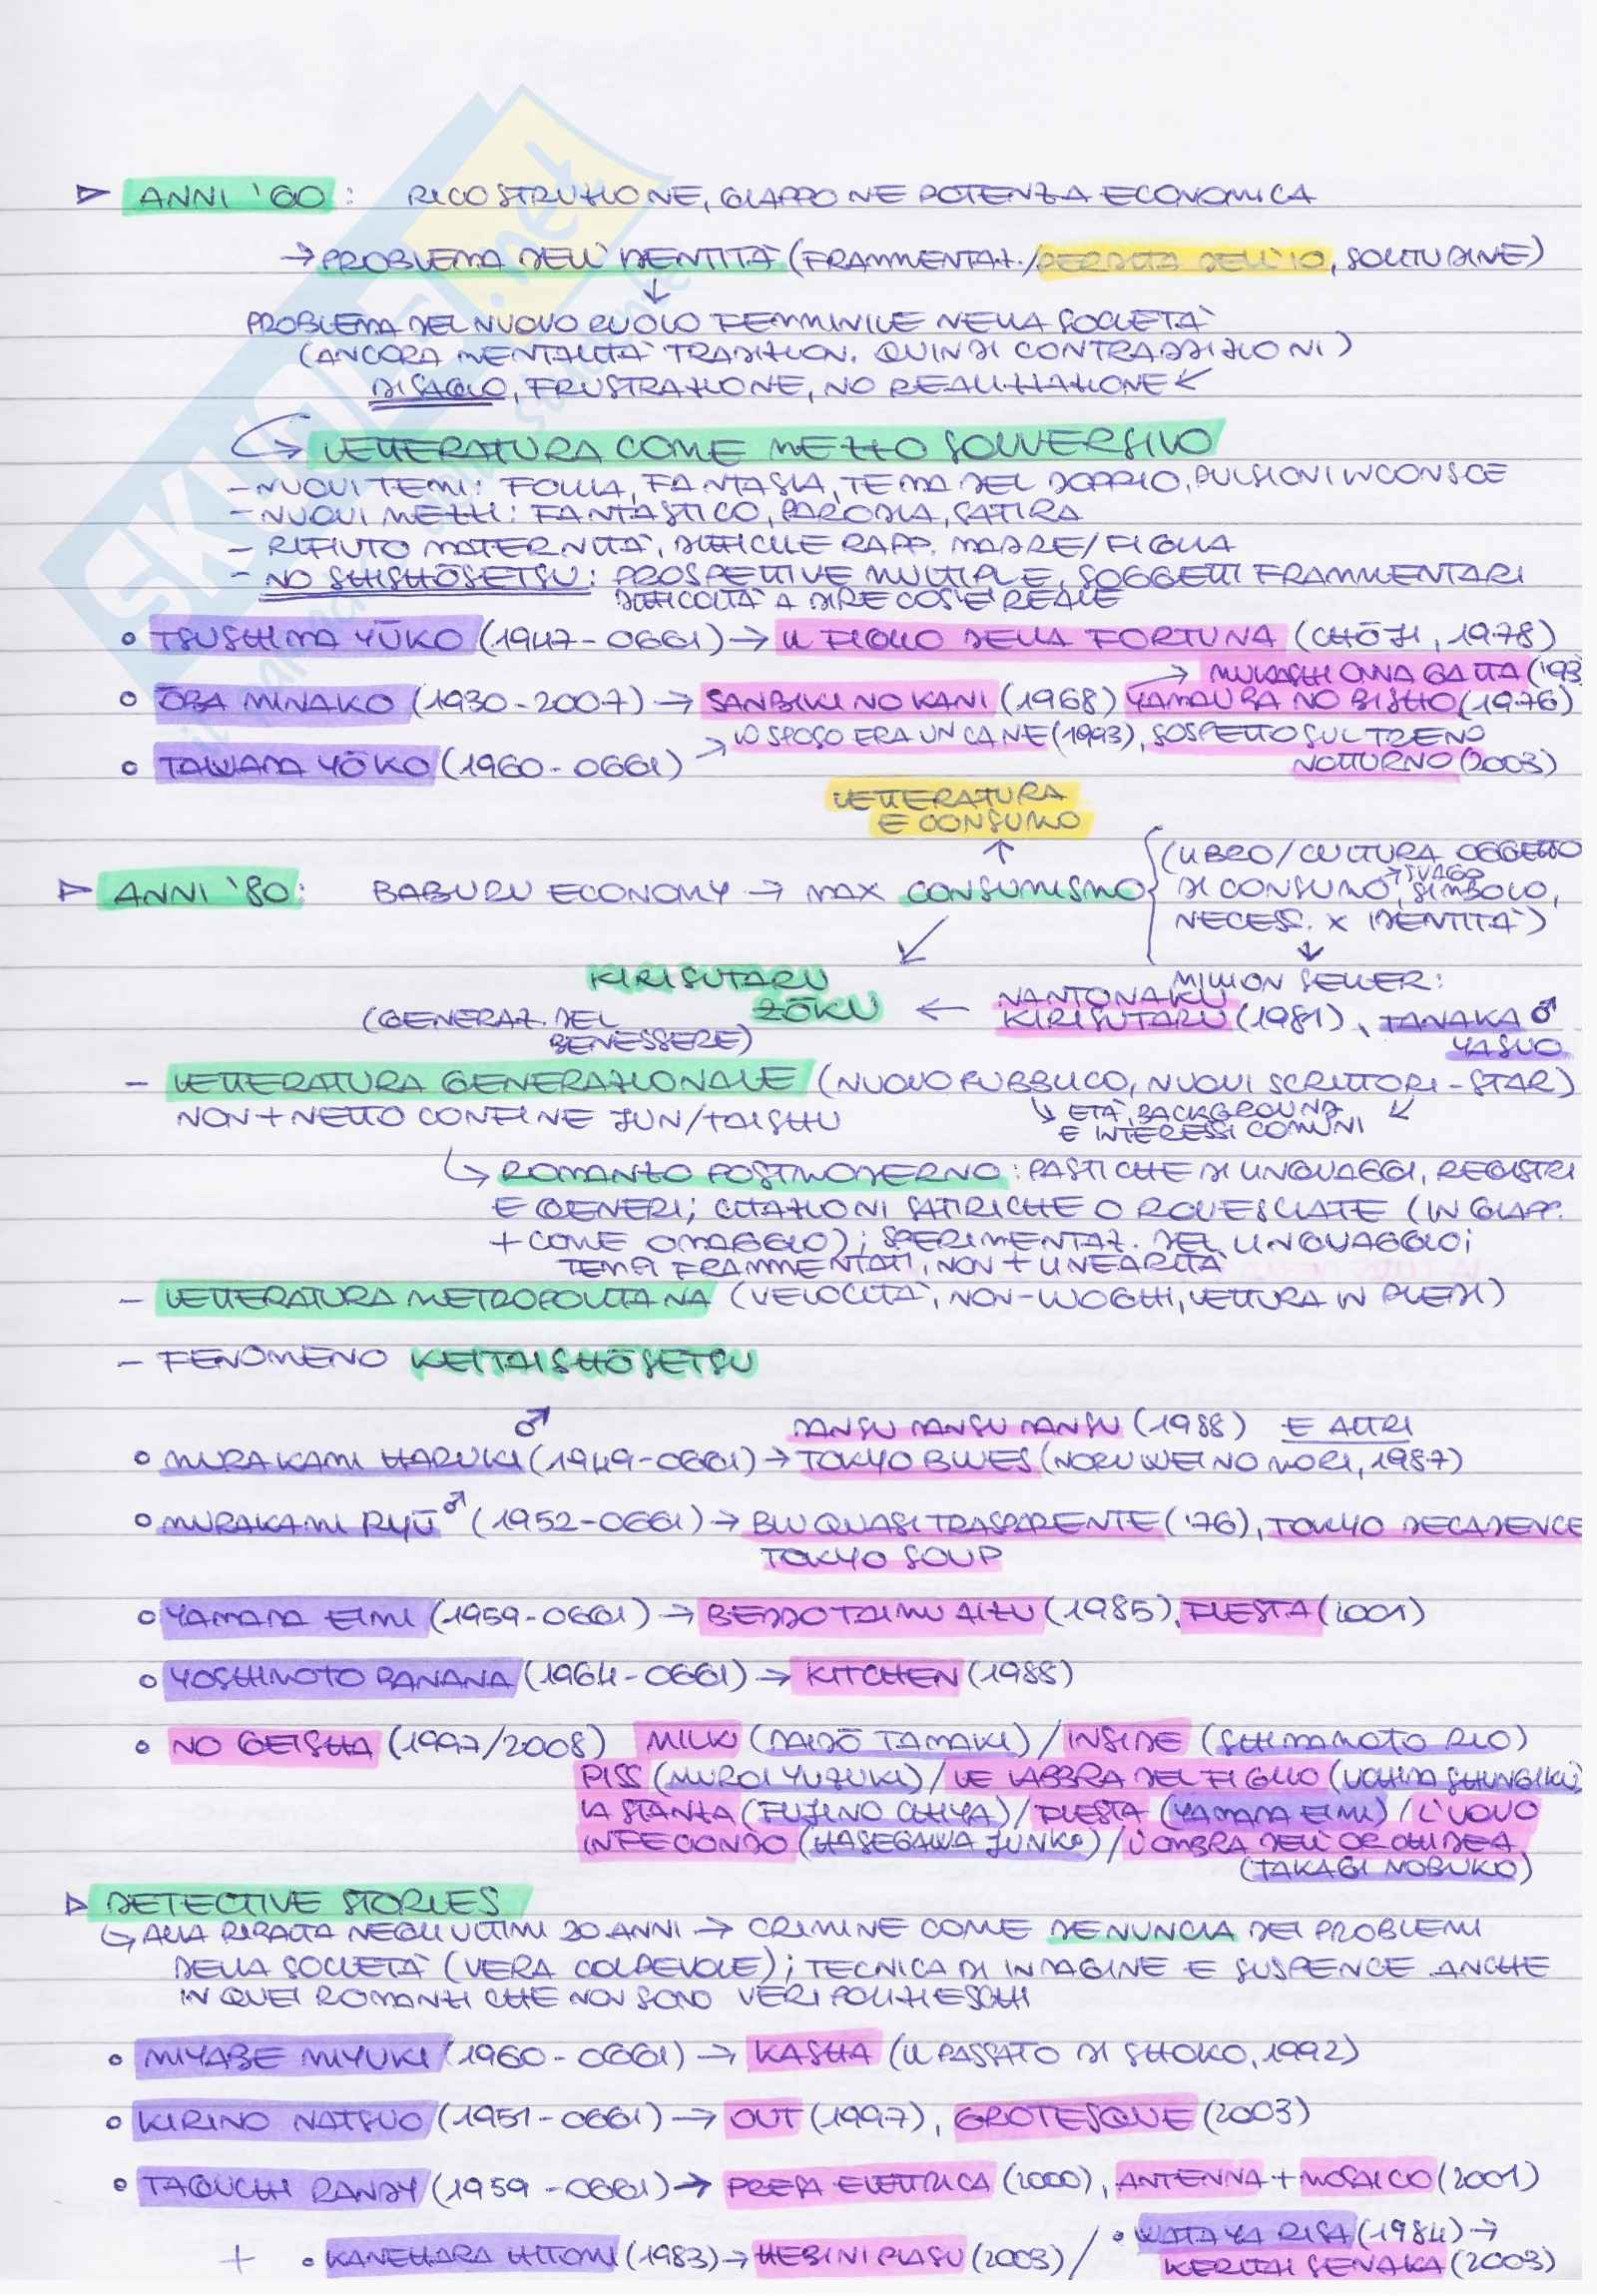 ▷ ANNI '60: RICOSTRUZIONE, GIAPPONE POTENZA ECONOMICA
→ PROBLEMA DELL'IDENTITÀ (FRAMMENTAZ./PERDITA DELL'IO, SOLITUDINE)
↓
PROBLEMA DEL NUOVO RUOLO FEMMINILE NELLA SOCIETÀ
(ANCORA MENTALITÀ TRADIZION. QUINDI CONTRADDIZIONI)
DISAGIO, FRUSTRAZIONE, NO REALIZZAZIONE ↙
↳ LETTERATURA COME MEZZO SOVVERSIVO
- NUOVI TEMI: FOLLIA, FANTASIA, TEMA DEL DOPPIO, PULSIONI INCONSCE
- NUOVI MEZZI: FANTASTICO, PARODIA, SATIRA
- RIFIUTO MATERNITÀ, DIFFICILE RAPP. MADRE/FIGLIA
- NO SHISHŌSETSU: PROSPETTIVE MULTIPLE, SOGGETTI FRAMMENTARI
DIFFICOLTÀ A DIRE COS'È REALE
• TSUSHIMA YŪKO (1947-OGGI) → IL FIGLIO DELLA FORTUNA (CHŌJI, 1978)
→ MUKASHI ONNA GA ITA ('93
• ŌBA MINAKO (1930-2007) → SANBIKI NO KANI (1968) YAMAUBA NO BISHO (1976)
→ LO SPOSO ERA UN CANE (1993), SOSPETTO SUL TRENO
• TAWADA YŌKO (1960-OGGI) NOTTURNO (2003)
LETTERATURA
E CONSUMO
↑
(LIBRO/CULTURA OGGETTO
→ SVAGO
▷ ANNI '80: BABURU ECONOMY → MAX CONSUMISMO { DI CONSUMO, SIMBOLO,
NECESS. X IDENTITÀ)
↙ ↓
KIRISUTARU MILLION SELLER:
ZŌKU ← NANTONAKU
(GENERAZ. DEL KIRISUTARU (1981), TANAKA ♂
BENESSERE) YASUO
- LETTERATURA GENERAZIONALE (NUOVO PUBBLICO, NUOVI SCRITTORI-STAR)
NON + NETTO CONFINE JUN/TAISHU ↳ ETÀ, BACKGROUND ↙
E INTERESSI COMUNI
↳ ROMANZO POSTMODERNO: PASTICHE DI LINGUAGGI, REGISTRI
E GENERI; CITAZIONI SATIRICHE O ROVESCIATE (IN GIAPP.
+ COME OMAGGIO); SPERIMENTAZ. DEL LINGUAGGIO;
TEMPI FRAMMENTATI, NON + LINEARITÀ
- LETTERATURA METROPOLITANA (VELOCITÀ, NON-LUOGHI, LETTURA IN PIEDI)
- FENOMENO KEITAISHŌSETSU
♂ DANSU DANSU DANSU (1988) E ALTRI
• MURAKAMI HARUKI (1949-OGGI) → TOKYO BLUES (NORUWEI NO MORI, 1987)
• MURAKAMI RYŪ ♂ (1952-OGGI) → BLU QUASI TRASPARENTE ('76), TOKYO DECADENCE
TOKYO SOUP
• YAMADA EIMI (1959-OGGI) → BEDDOTAIMU AIZU (1985), FIESTA (2001)
• YOSHIMOTO BANANA (1964-OGGI) → KITCHEN (1988)
• NO GEISHA (1997/2008) MILK (DAIDŌ TAMAKI) / INSIDE (SHIMAMOTO RIO)
PISS (MUROI YUZUKI) / LE LABBRA DEL FIGLIO (UCHIDA SHUNGIKU)
LA STANZA (FUJINO CHIYA) / FIESTA (YAMADA EIMI) / L'UOVO
INFECONDO (HASEGAWA JUNKO) / L'OMBRA DELL'ORCHIDEA
(TAKAGI NOBUKO)
▷ DETECTIVE STORIES
↳ ALLA RIBALTA NEGLI ULTIMI 20 ANNI → CRIMINE COME DENUNCIA DEI PROBLEMI
DELLA SOCIETÀ (VERA COLPEVOLE); TECNICA DI INDAGINE E SUSPENCE ANCHE
IN QUEI ROMANZI CHE NON SONO VERI POLIZIESCHI
• MIYABE MIYUKI (1960-OGGI) → KASHA (IL PASSATO DI SHOKO, 1992)
• KIRINO NATSUO (1951-OGGI) → OUT (1997), GROTESQUE (2003)
• TAGUCHI RANDY (1959-OGGI) → PRESA ELETTRICA (2000), ANTENNA + MOSAICO (2001)
+ • KANEHARA HITOMI (1983) → HEBI NI PIASU (2003) / • WATAYA RISA (1984) →
KERITAI SENAKA (2003)
SKUOLA.net